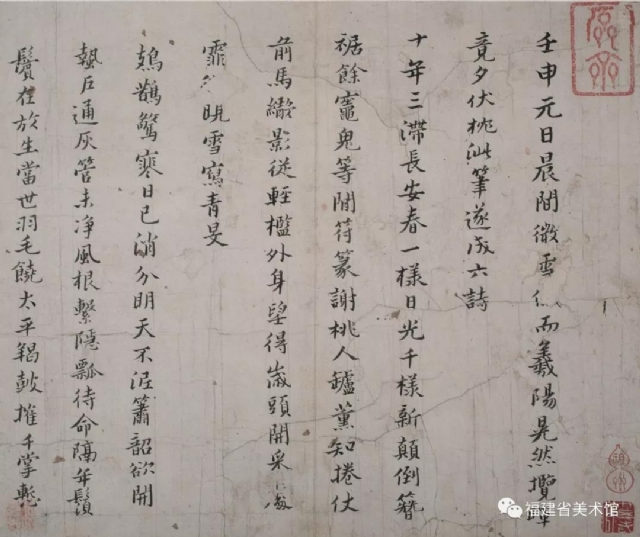 壬申元日晨間微雪 而羲陽晃然攬
竟夕伏枕泚筆遂成六詩
十年三滯長安春一樣日光千樣新顛倒簪
裾餘竈鬼等閒符篆謝桃人鑪薰知捲仗
前馬繖影從輕檻外身望得歲頭開采
霏 晛雪寫青旻
鳷鵲驚寒日已消分明天不涩簫韶欲開
蟄戶通灰管未净風根繫隱瓢待命隔年鬚
鬢在放生當世羽毛饒太平羯鼓摧千掌
福建省美术馆